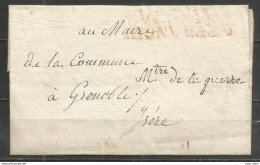 au Maire
de la Commune
Mtre de la guerre
à Grenoble
Isère